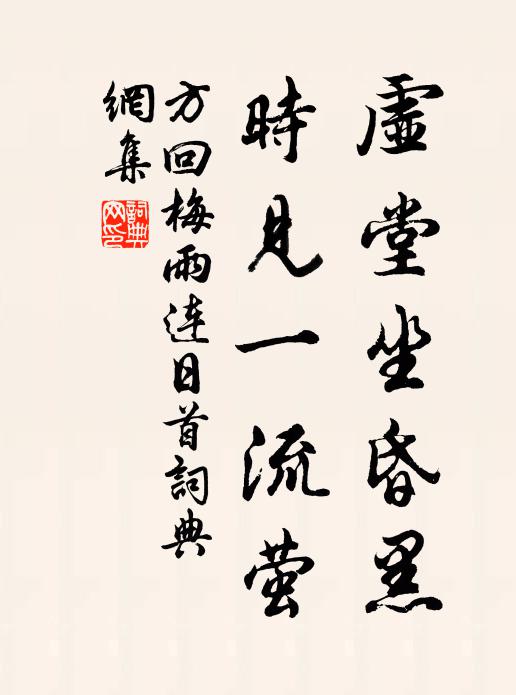 虛堂坐昏黑
時見一流萤
方回梅雨连日首詞典
網集
詞典網印